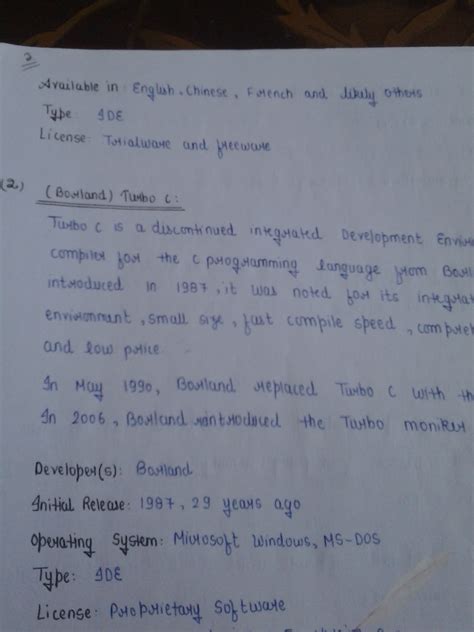 2
Available in: English, Chinese, French and likely others
Type: IDE
License: Trialware and freeware
(2.) (Borland) Turbo C:
Turbo C is a discontinued integrated Development Envir
compiler for the C programming language from Borl
introduced in 1987, it was noted for its integrat
environment, small size, fast compile speed, compreh
and low price.
In May 1990, Borland replaced Turbo C with th
In 2006, Borland reintroduced the Turbo moniker
Developer(s): Borland
Initial Release: 1987, 29 years ago
Operating System: Microsoft Windows, MS-DOS
Type: IDE
License: Proprietary Software